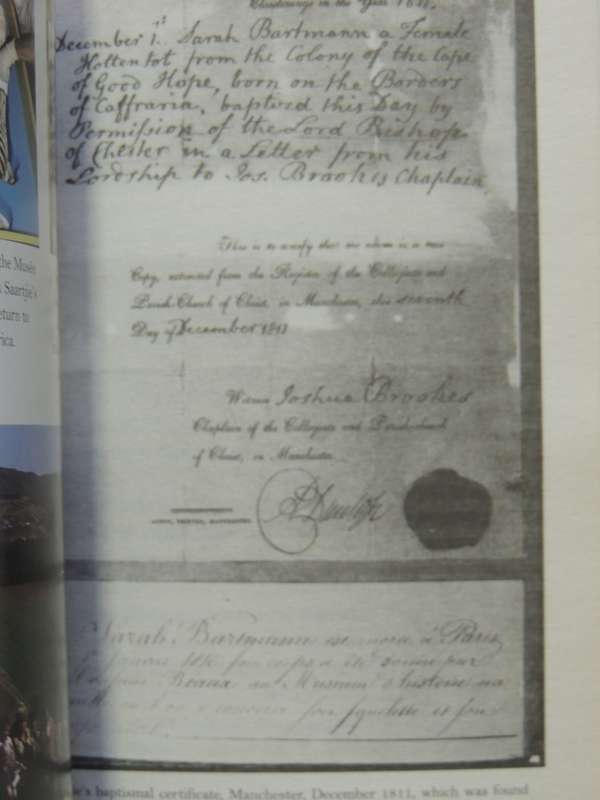 Christenings in the Year 1811.
December 1st Sarah Bartmann a Female
Hottentot from the Colony of the Cape
of Good Hope, born on the Borders
of Caffraria, baptized this Day by
Permission of the Lord Bishop
of Chester in a Letter from his
Lordship to Jos. Brookes Chaplain
This is to certify that the above is a true
Copy, extracted from the Register of the Collegiate and
Parish-Church of Christ, in Manchester, this seventh
Day of December 1811
Witness Joshua Brookes
Chaplain of the Collegiate and Parish-church
of Christ, in Manchester.
PRINTER, MANCHESTER.
A Dunlop
Sarah Bartmann est morte à Paris
corps a été
au Museum
squelette et son
the Musée
Saartjie's
return to
rica.
's baptismal certificate, Manchester, December 1811, which was found